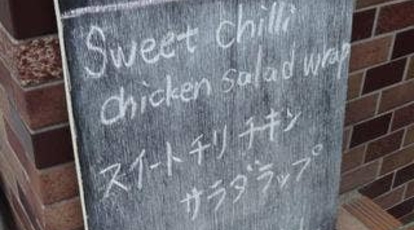 Sweet chilli
chicken salad wrap
スイートチリチキン
サラダラップ